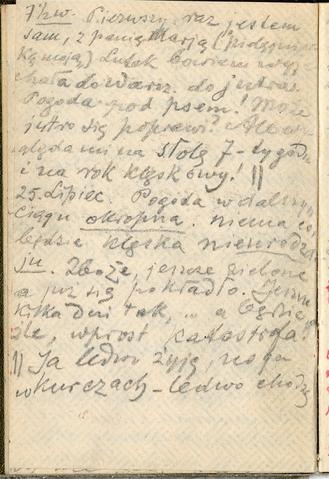 Pierwszy raz jestem
sam, z panią Marją (pielęgniar
ką moją) Lutek bowiem wyje
chała do Warsz. do jutra.
Pogoda pod psem! Może
jutro się poprawi? Ale wy
gląda mi na słotę 7-tygodn
i na rok klęskowy! ||
25. Lipiec. Pogoda w dalszym
ciągu okropna. niema co,
będzie klęska nieurodza
ju. Zboże, jeszcze zielone
a już się pokładło. Jeszcze
kilka dni tak, .. a będzie
źle, wprost katastrofa!
|| Ja ledwo żyję, noga
w kurczach - ledwo chodzę